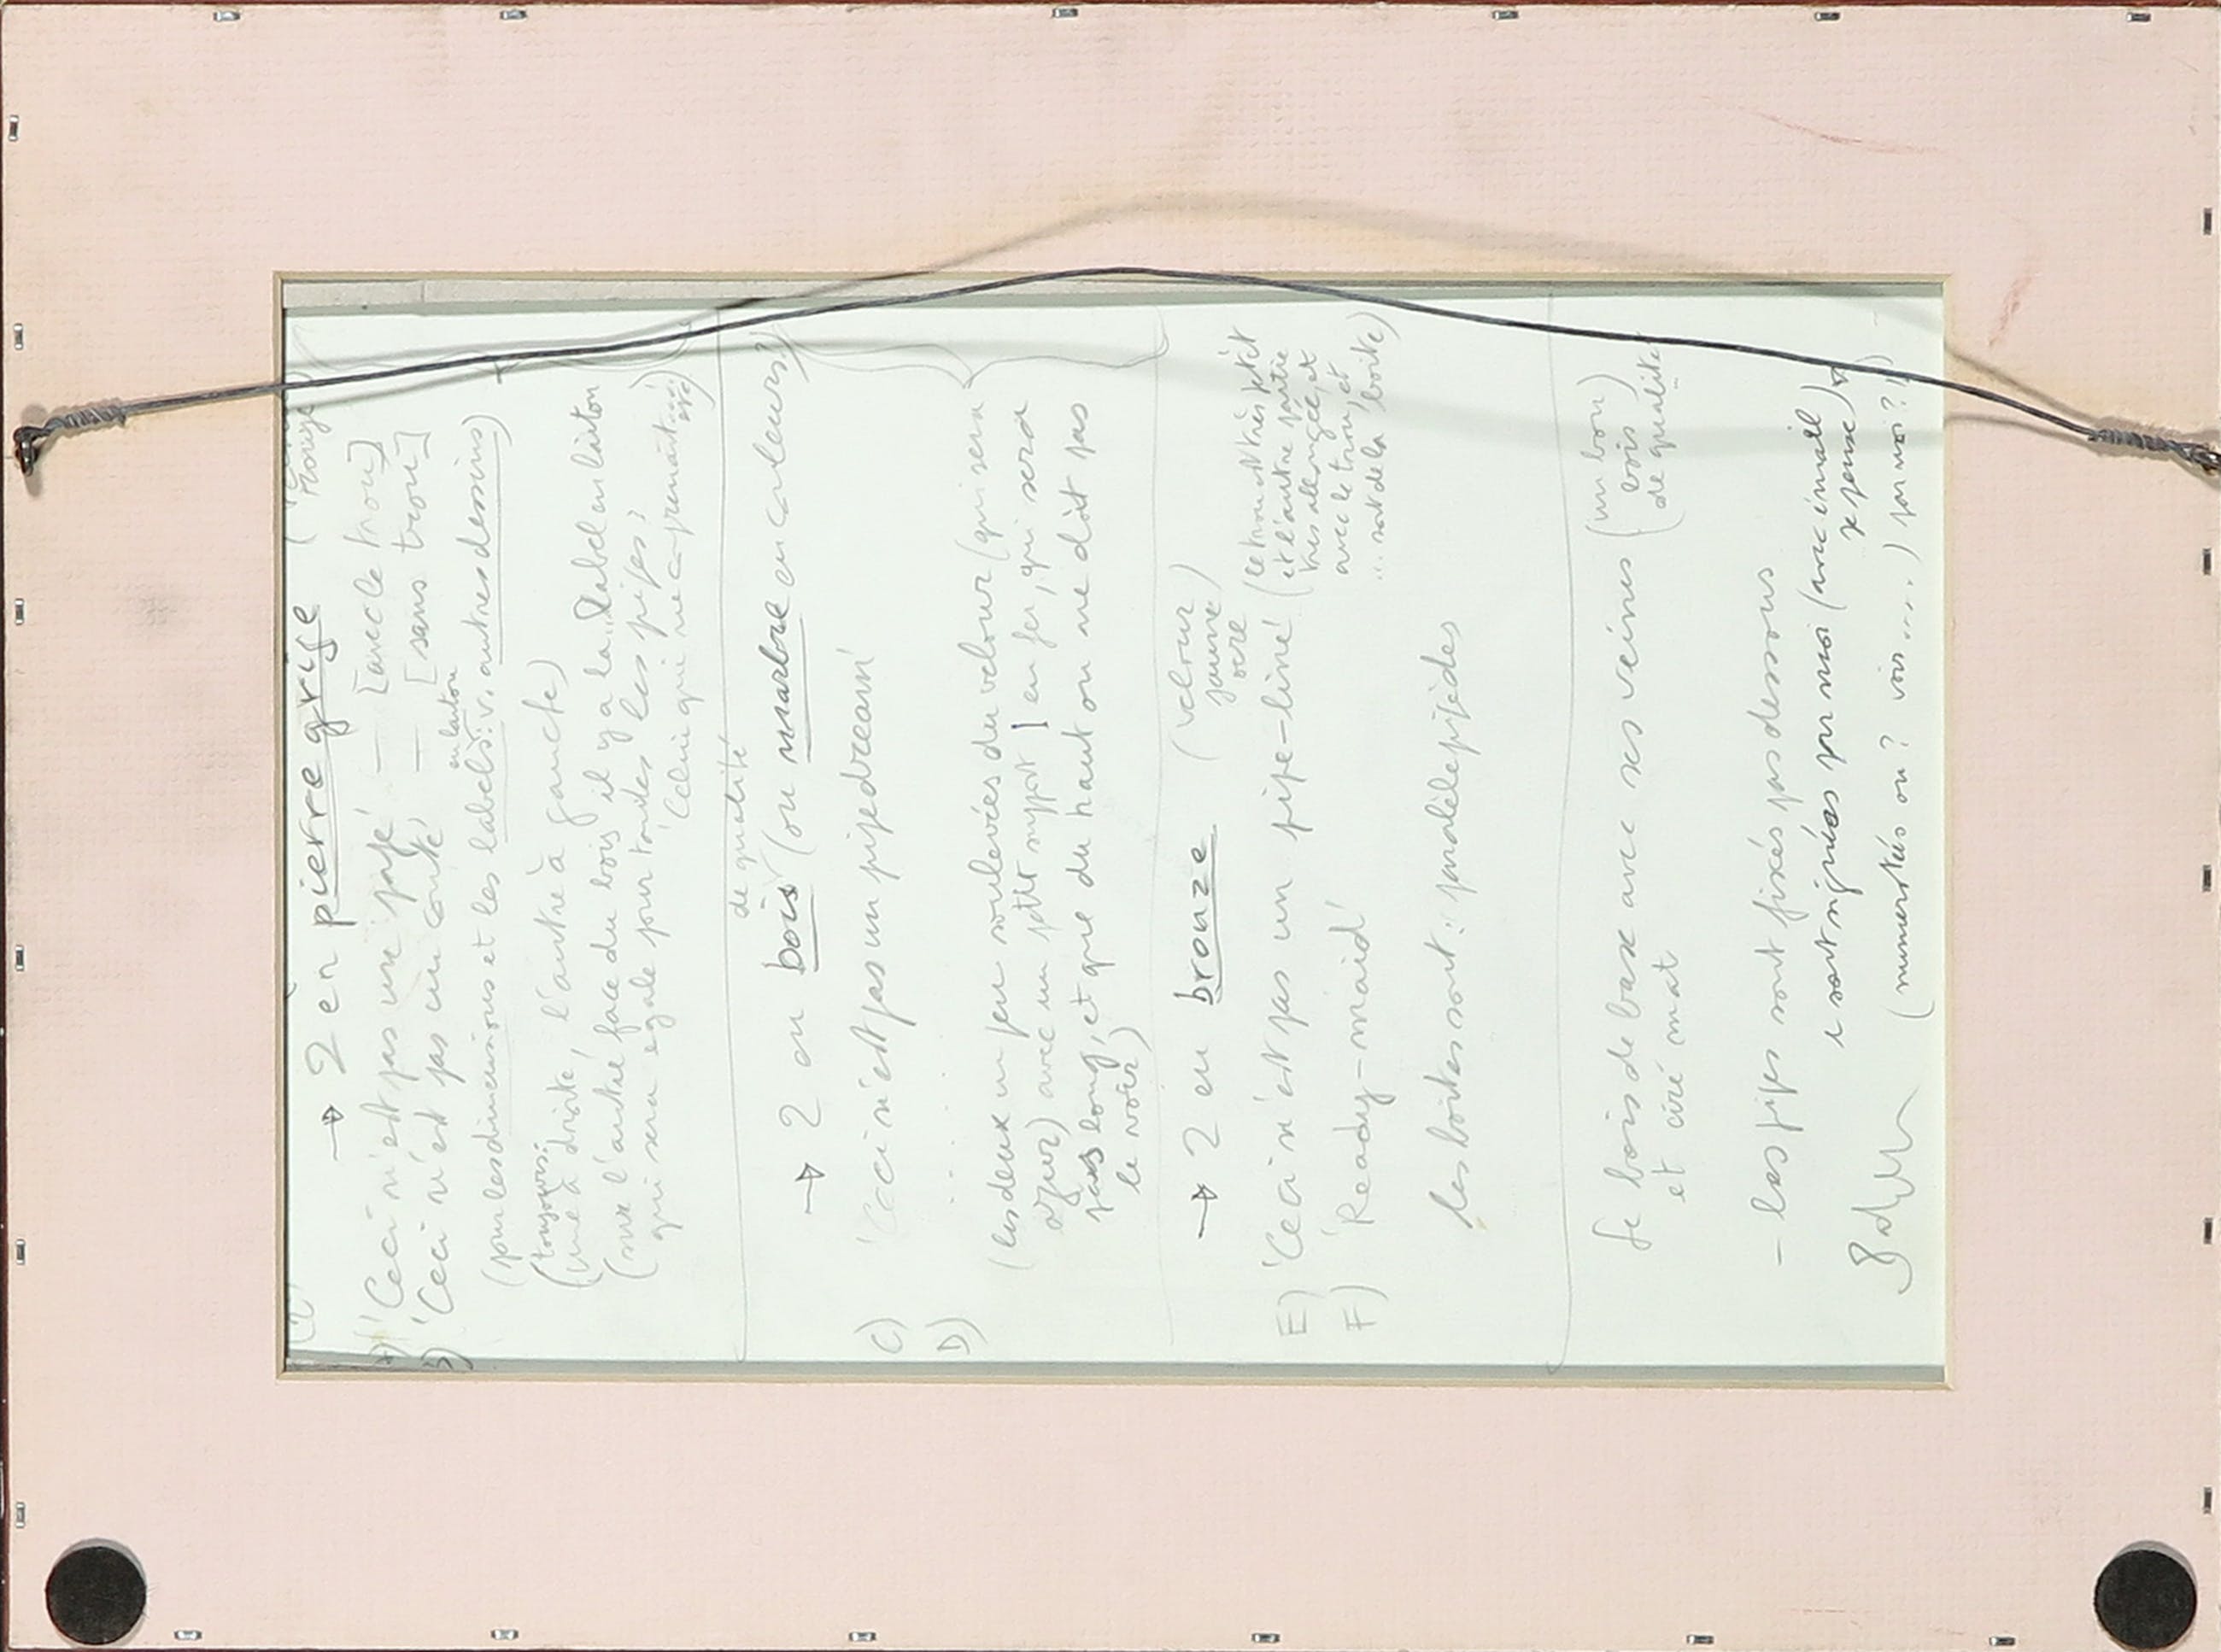 (2
→ 2 en pierre grise
A) 'Ceci n'est pas une pipe' — [avec le trou]
B) 'Ceci n'est pas un conte' — [sans trou]
(pour les dimensions et les labels: v. autres dessins)
en laiton
(toujours:
(une à droite, l'autre à gauche)
(sur l'autre face du bois il y a la label en laiton
qui sera egale pour toutes les pipes:
celui qui
de qualité
→ 2 en bois (ou marbre en couleurs?)
C) 'Ceci n'est pas un pipedream'
D) . . . . .
(les deux un peu soulevées du velour (qui sera
azur) avec un petit support | en fer, qui sera
pas long, et que du haut on ne doit pas
le voir)
→ 2 en bronze (velour
jaune)
ocre
E) 'Ceci n'est pas un pipe-line' (le trou est très petit
et l'autre partie
très allongée, et
avec le trou, et
... sort de la boite)
F) 'Ready-maid'
les boites sont: paralèlepipèdes
Le bois de base avec ses veines (un bon)
bois
de qualité
et ciré mat
– les pipes sont fixés par dessous
e sont signées par moi (avec émail
je pense)
(numerotés ou? vis....) par moi?!)